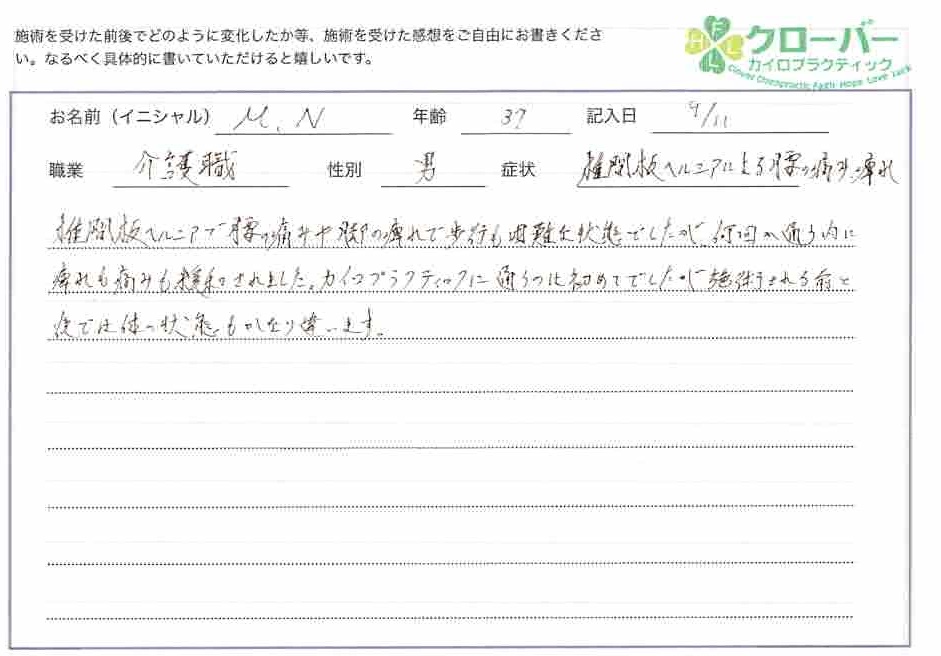 施術を受けた前後でどのように変化したか等、施術を受けた感想をご自由にお書きくださ
い。なるべく具体的に書いていただけると嬉しいです。
F H L L
クローバー
カイロプラクティック
Clover Chiropractic Faith Hope Love Luck
お名前（イニシャル） M.N 年齢 37 記入日 9/11
職業 介護職 性別 男 症状 椎間板ヘルニアによる腰の痛み・痺れ
椎間板ヘルニアで腰の痛みや脚の痺れで歩行も困難な状態でしたが、何回か通う内に
痺れも痛みも緩和されました。カイロプラクティックに通うのは初めてでしたが施術される前と
後では体の状態もかなり違います。